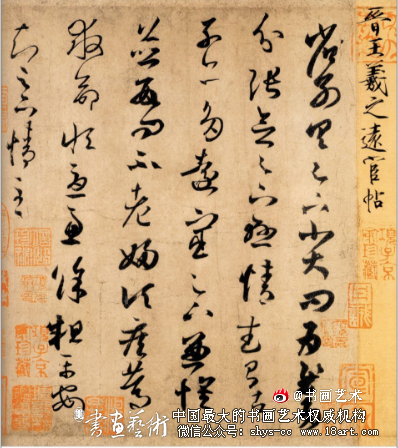 晉王羲之遠宦帖
省別具足下小大問為慰多
分張念足下懸情武昌諸
子亦多遠宦足下兼懷
並數問不老婦頃疾篤
救命恒憂慮餘粗平安
知足下情至
@书画艺术
集
書畫藝術
中国最大的书画艺术权威机构
微信公众号：shys-cc www.18art.com